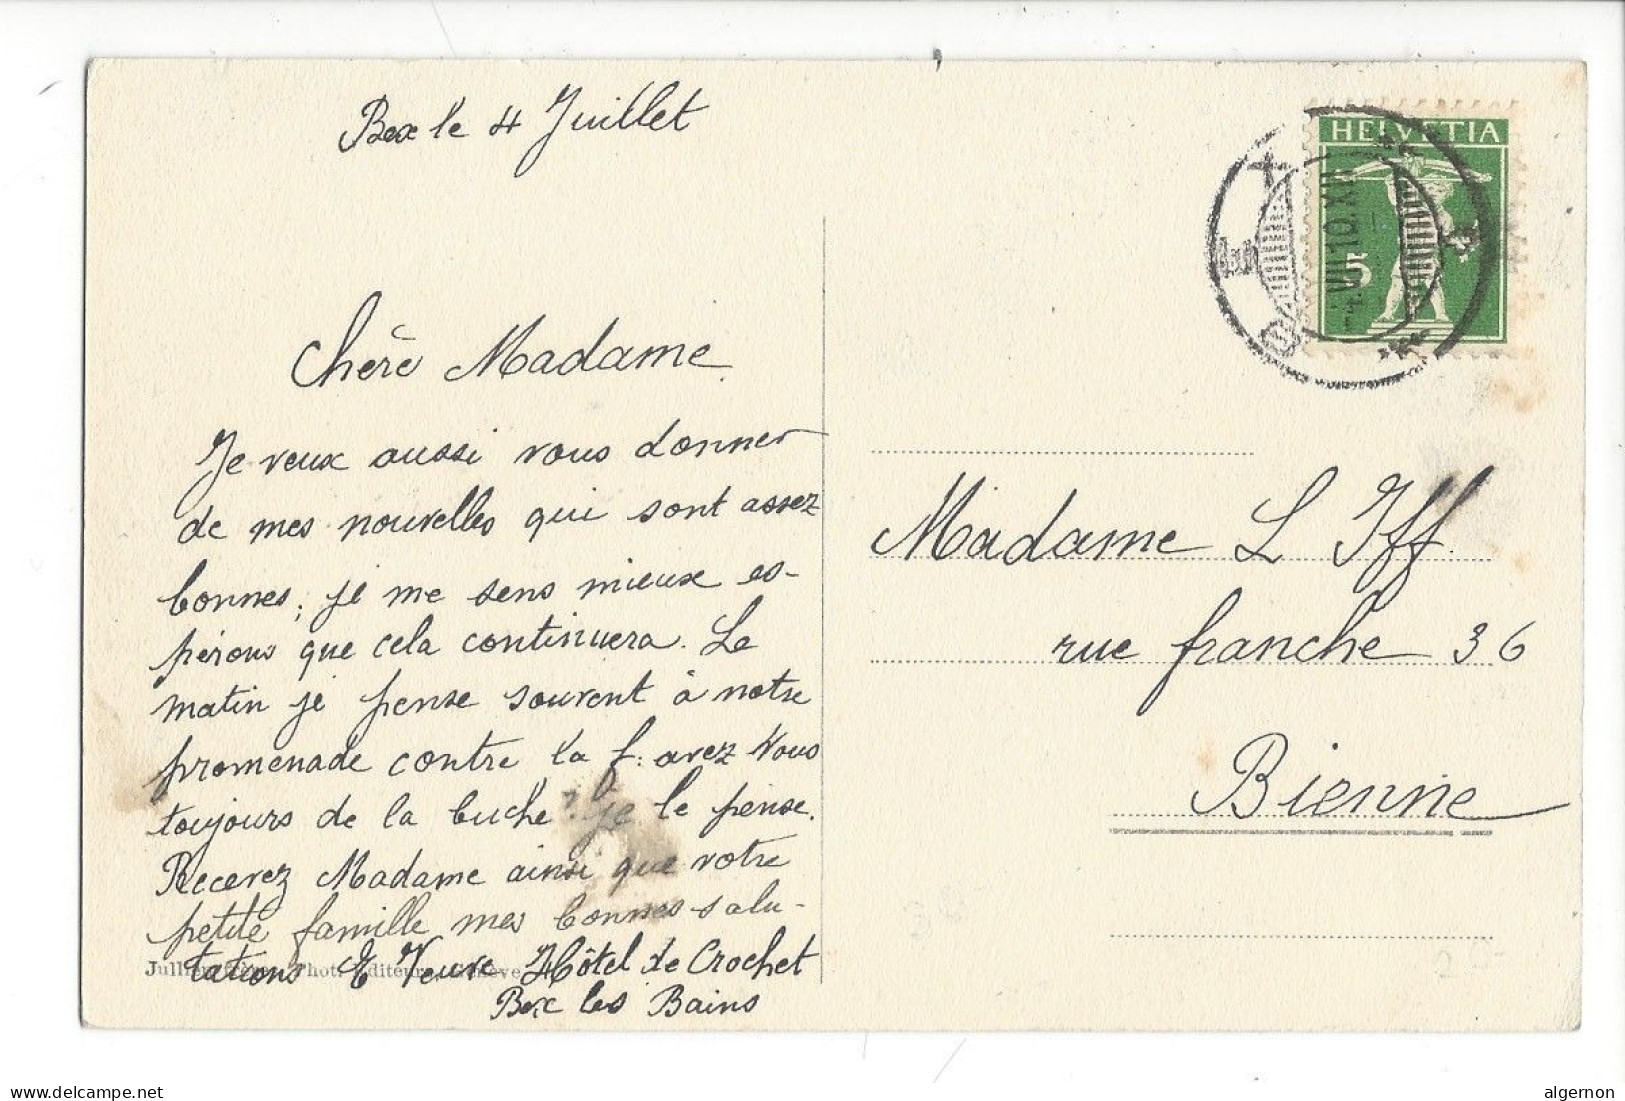 Bex le 4 Juillet
Chère Madame
Je veux aussi vous donner
de mes nouvelles qui sont assez
bonnes, je me sens mieux es-
pérons que cela continuera. Le
matin je pense souvent à notre
promenade contre la f. avez Vous
toujours de la buche? je le pense.
Recevez Madame ainsi que votre
petite famille mes bonnes salu-
tations E Veuve Hôtel de Crochet
Bex les Bains
Jullien frères, Phot. Editeurs, Genève
HELVETIA
5
VII.10.XII
Madame L Iff.
rue franche 36
Bienne
delcampe.net
algernon